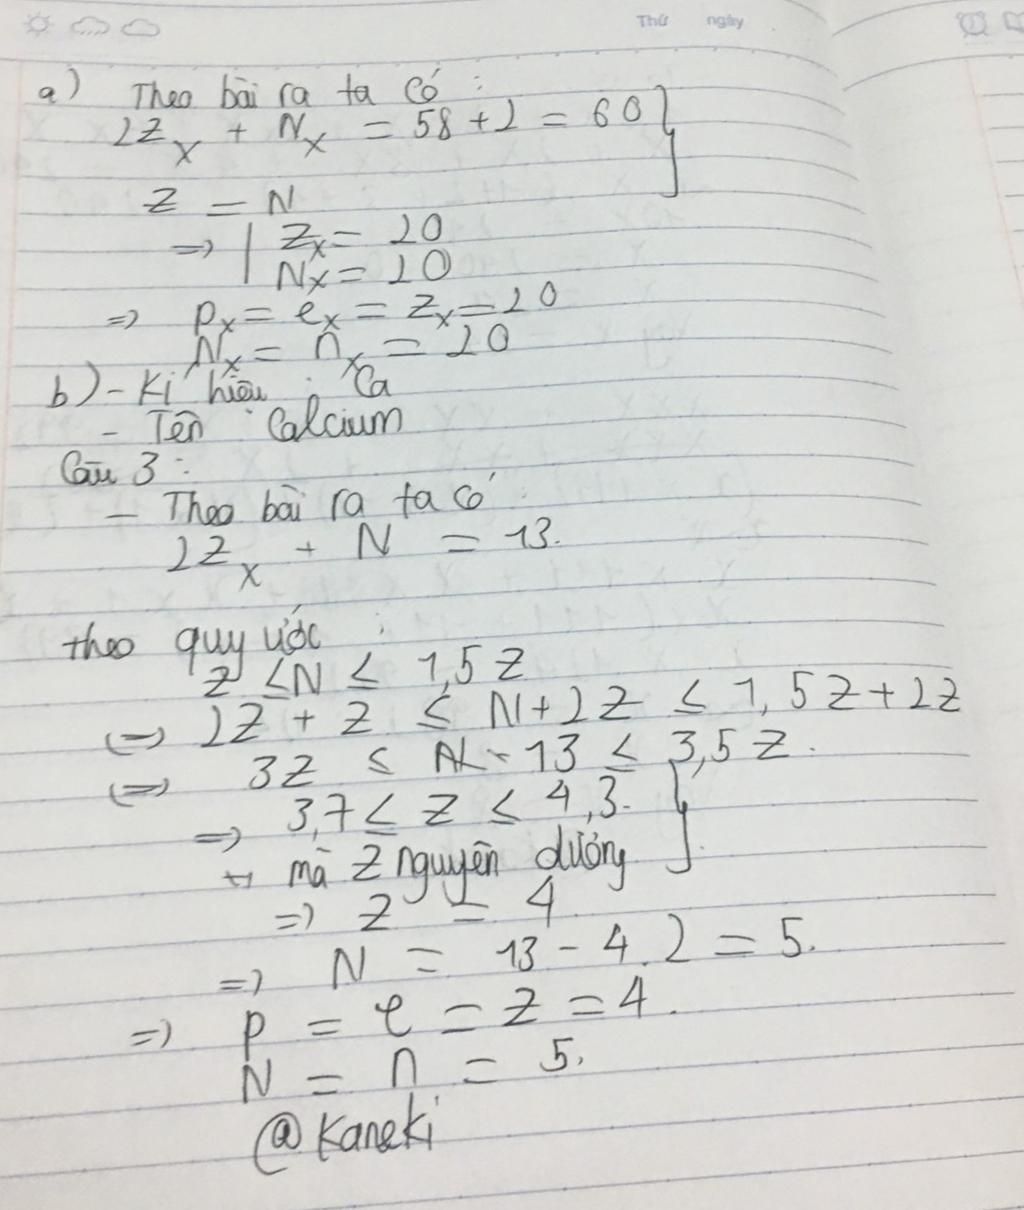 Thứ ngày
a) Theo bài ra ta có :
2Z_X + N_X = 58 + 2 = 60
Z = N
=> Z_X = 20
N_X = 20
=> p_X = e_X = Z_X = 20
N_X = n_X = 20
b) - Kí hiệu : Ca
- Tên : Calcium
Câu 3 :
- Theo bài ra ta có :
2Z_X + N = 13.
theo quy ước :
Z ≤ N ≤ 1,5 Z
(=) 2Z + Z ≤ N + 2Z ≤ 1,5Z + 2Z
(=) 3Z ≤ 13 ≤ 3,5 Z.
=) 3,7 ≤ Z ≤ 4,3.
mà Z nguyên dương
=) Z = 4
=) N = 13 - 4.2 = 5.
=) p = e = Z = 4.
N = n = 5.
@Kaneki